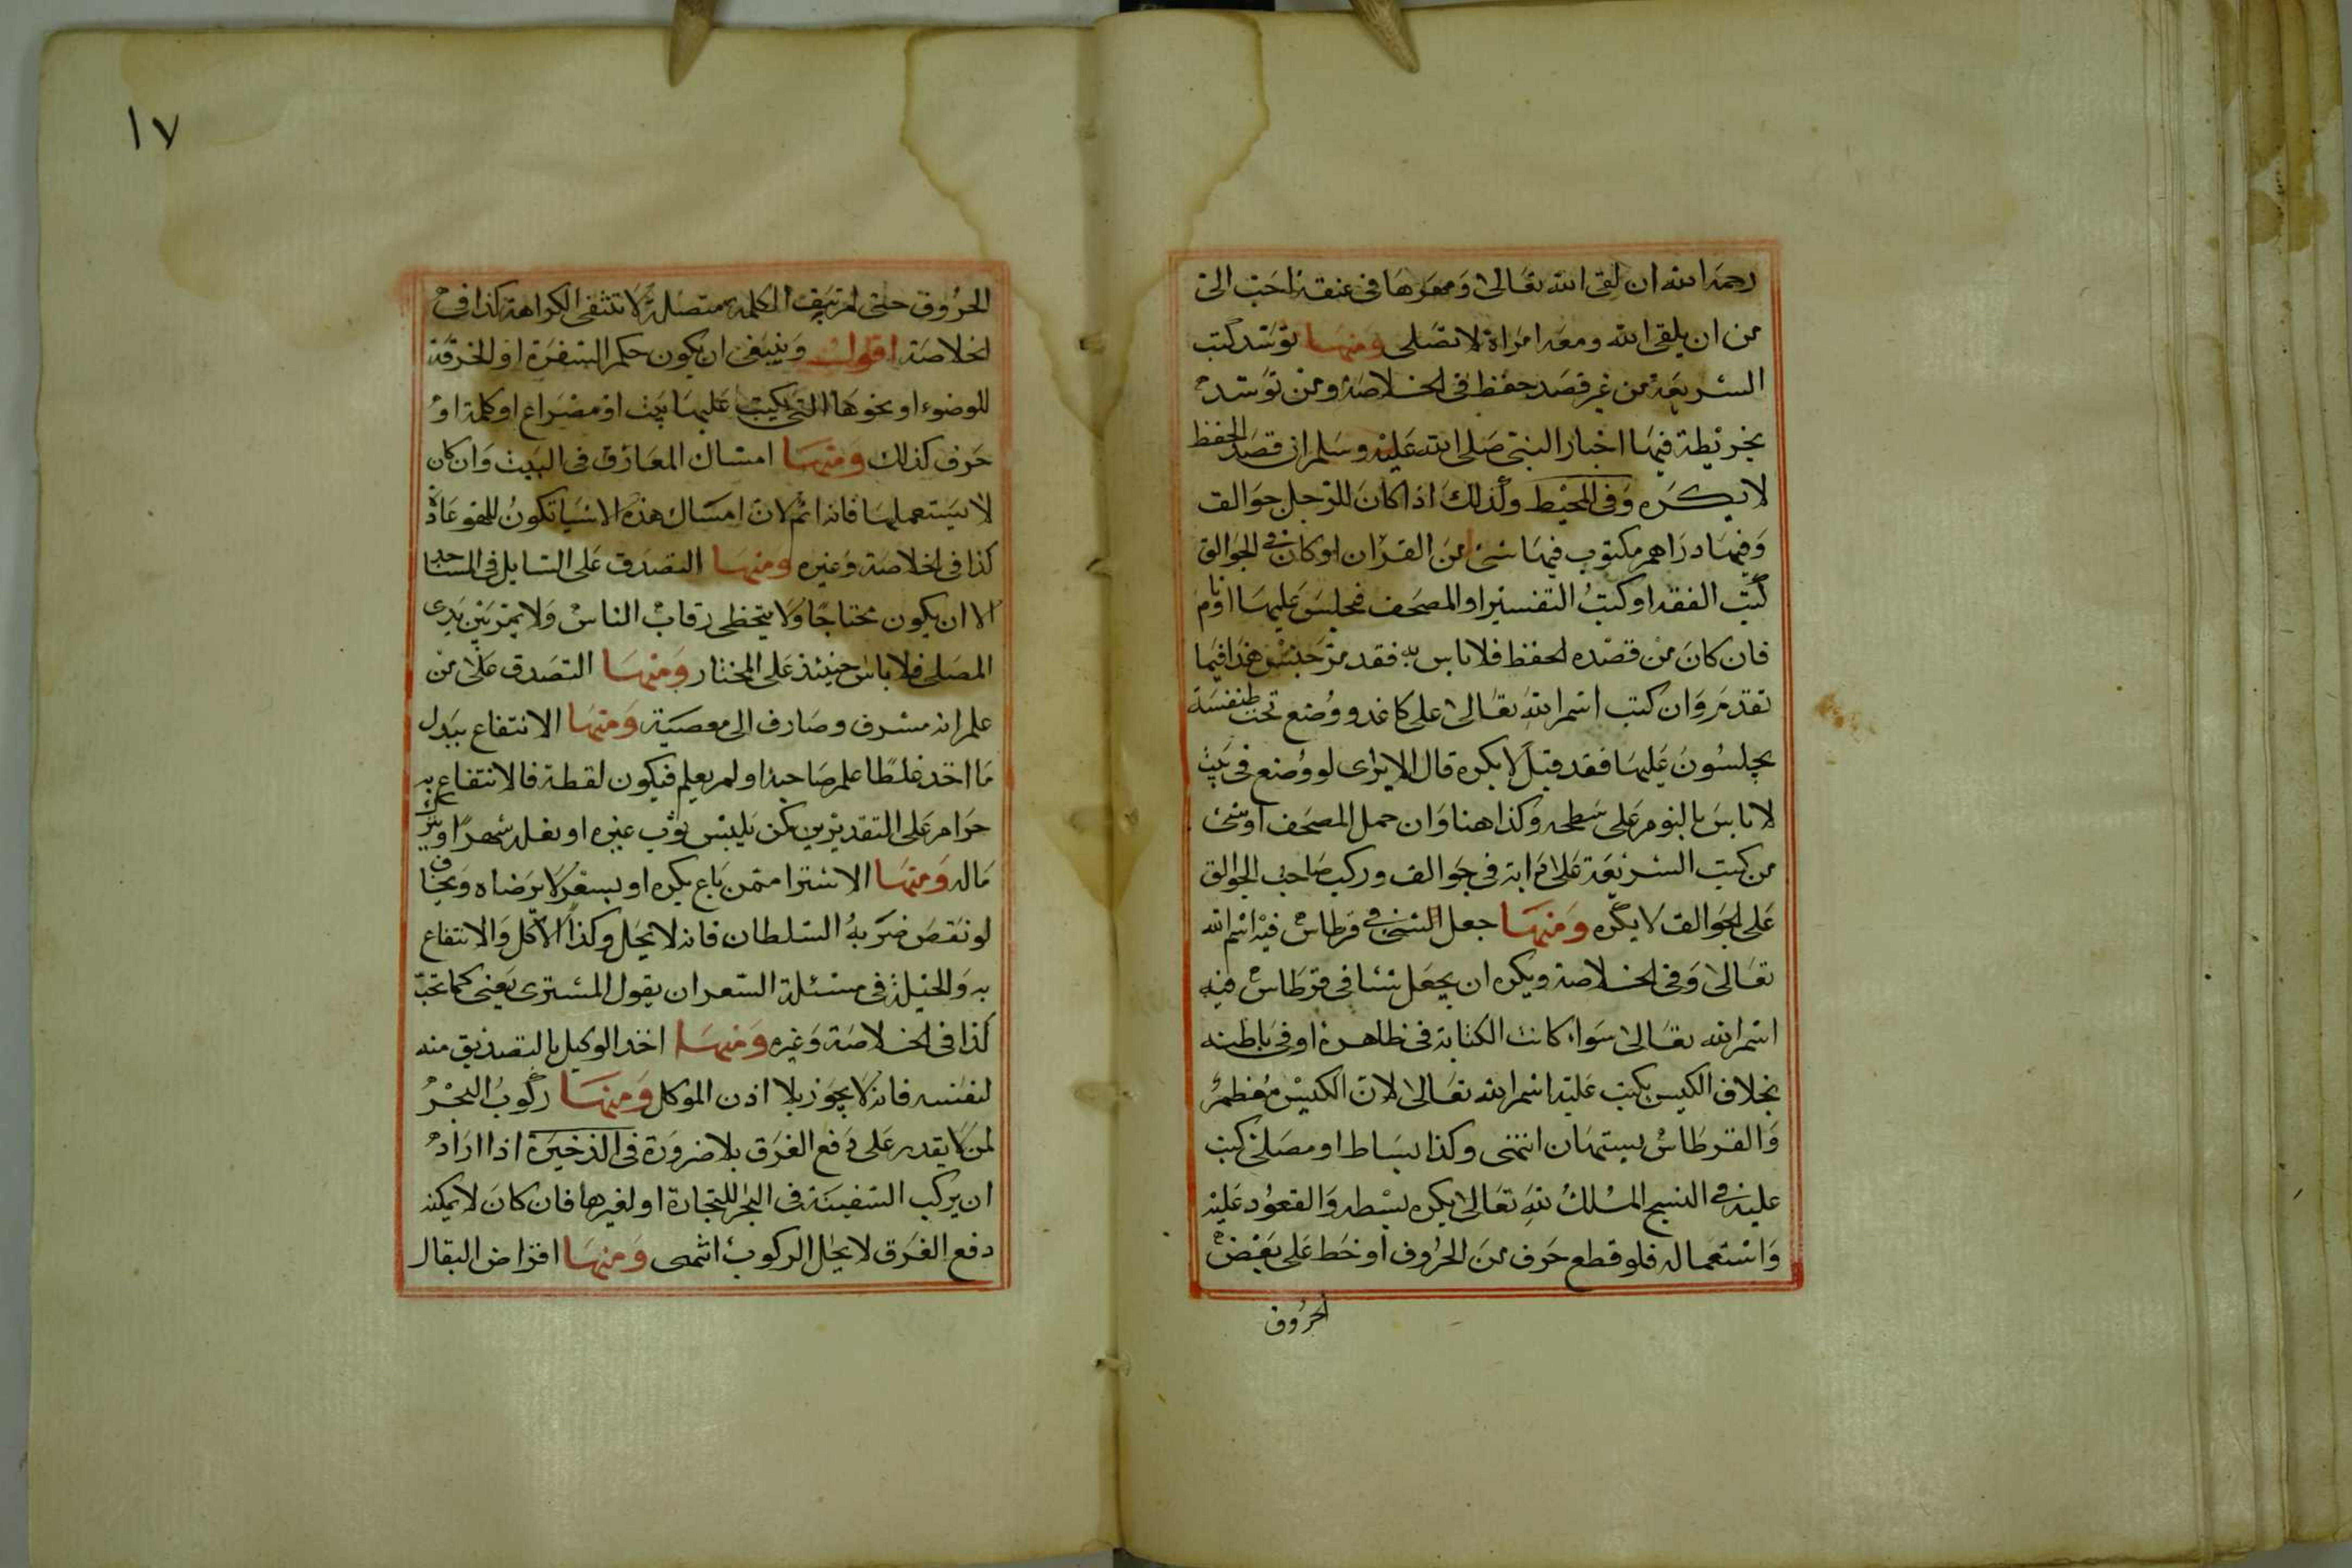 رحمه الله ان لقى الله تعالى ومهرها فى عنقه احب الى
من ان يلقى الله ومعه امراة لا تصلى ومنها توسد كتب
الشريعة من غير قصد حفظ فى الخلاصة ومن توسد
بخريطة فيها اخبار النبى صلى الله عليه وسلم ان قصد الحفظ
لا يكره وفى المحيط وكذلك اذا كان للرجل جوالق
وفيها دراهم مكتوب فيها شئ من القران او كان فى الجوالق
كتب الفقه او كتب التفسير او المصحف فجلس عليها او نام
فان كان من قصده الحفظ فلا باس به فقد مر جنس هذا فيما
تقدم وان كتب اسم الله تعالى على كاغد ووضع تحت طنفسة
يجلسون عليها فقد قيل لا يكره قال الا يرى لو وضع فى بيت
لا باس بالنوم على سطحه وكذا هنا وان حمل المصحف او شئ
من كتب الشريعة على دابة فى جوالق وركب صاحب الجوالق
على الجوالق لا يكره ومنها جعل الشئ فى قرطاس فيه اسم الله
تعالى وفى الخلاصة ويكره ان يجعل شئا فى قرطاس فيه
اسم الله تعالى سواء كانت الكتابة فى ظاهره او فى باطنه
بخلاف الكيس يكتب عليه اسم الله تعالى لان الكيس معظم
والقرطاس يستهان انتهى وكذا بساط او مصلى كتب
عليه فى النسج الملك لله تعالى يكره بسطه والقعود عليه
واستعماله فلو قطع حرف من الحروف او خط على بعض
الحروف
١٧
الحروف حتى لم تبق الكلمة متصلة لا تنتفى الكراهة كذا فى
الخلاصة اقول وينبغى ان يكون حكم السفرة او الخرقة
للوضوء او نحوها التى يكتب عليها بيت او مصراع او كلمة او
حرف كذلك ومنها امساك المعازف فى البيت وان كان
لا يستعملها فانه اثم لان امساك هذه الاشيا تكون للهو عادة
كذا فى الخلاصة وغيره ومنها التصدق على السايل فى المساجد
الا ان يكون محتاجا ولا يتخطى رقاب الناس ولا يمر بين يدى
المصلى فلا باس حينئذ على المختار ومنها التصدق على من
علم انه مسرف وصارف الى معصية ومنها الانتفاع ببدل
ما اخذ غلطا علم صاحبه او لم يعلم فيكون لقطة فالانتفاع به
حرام على التقديرين كمن يلبس ثوب غيره او نعله شهرا
ماله ومنها الاشترا ممن باع بكره او بسعر لا يرضاه ويخاف
لو نقص ضربه السلطان فانه لا يحل وكذا الاكل والانتفاع
به والحيلة فى مسئلة السعر ان يقول المشترى يعنى كما تحب
كذا فى الخلاصة وغيره ومنها اخذ الوكيل بالتصديق منه
لنفسه فانه لا يجوز بلا اذن الموكل ومنها ركوب البحر
لمن لا يقدر على دفع الغرق بلا ضرورة فى الذخيرة اذا اراد
ان يركب السفينة فى البحر للتجارة او لغيرها فان كان لا يمكنه
دفع الغرق لا يحل الركوب انتهى ومنها اقراض البقال